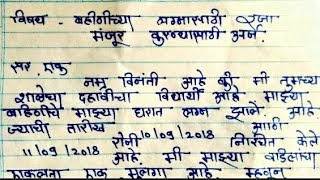 विषय - बहीणीच्या लग्नासाठी रजा
मंजूर करण्यासाठी अर्ज.
सर,
नम्र विनंती आहे की मी तुमच्या
शाळेचा दहावीचा विद्यार्थी आहे माझ्या
बहिणीचे माझ्या घरात लग्न झाले. आहे.
ज्याची तारीख 10/09/2018 आणि
11/09/2018 रोजी निश्चित केले
आहे. मी माझ्या वडिलांचा
एकलता एक मुलगा आहे म्हणून